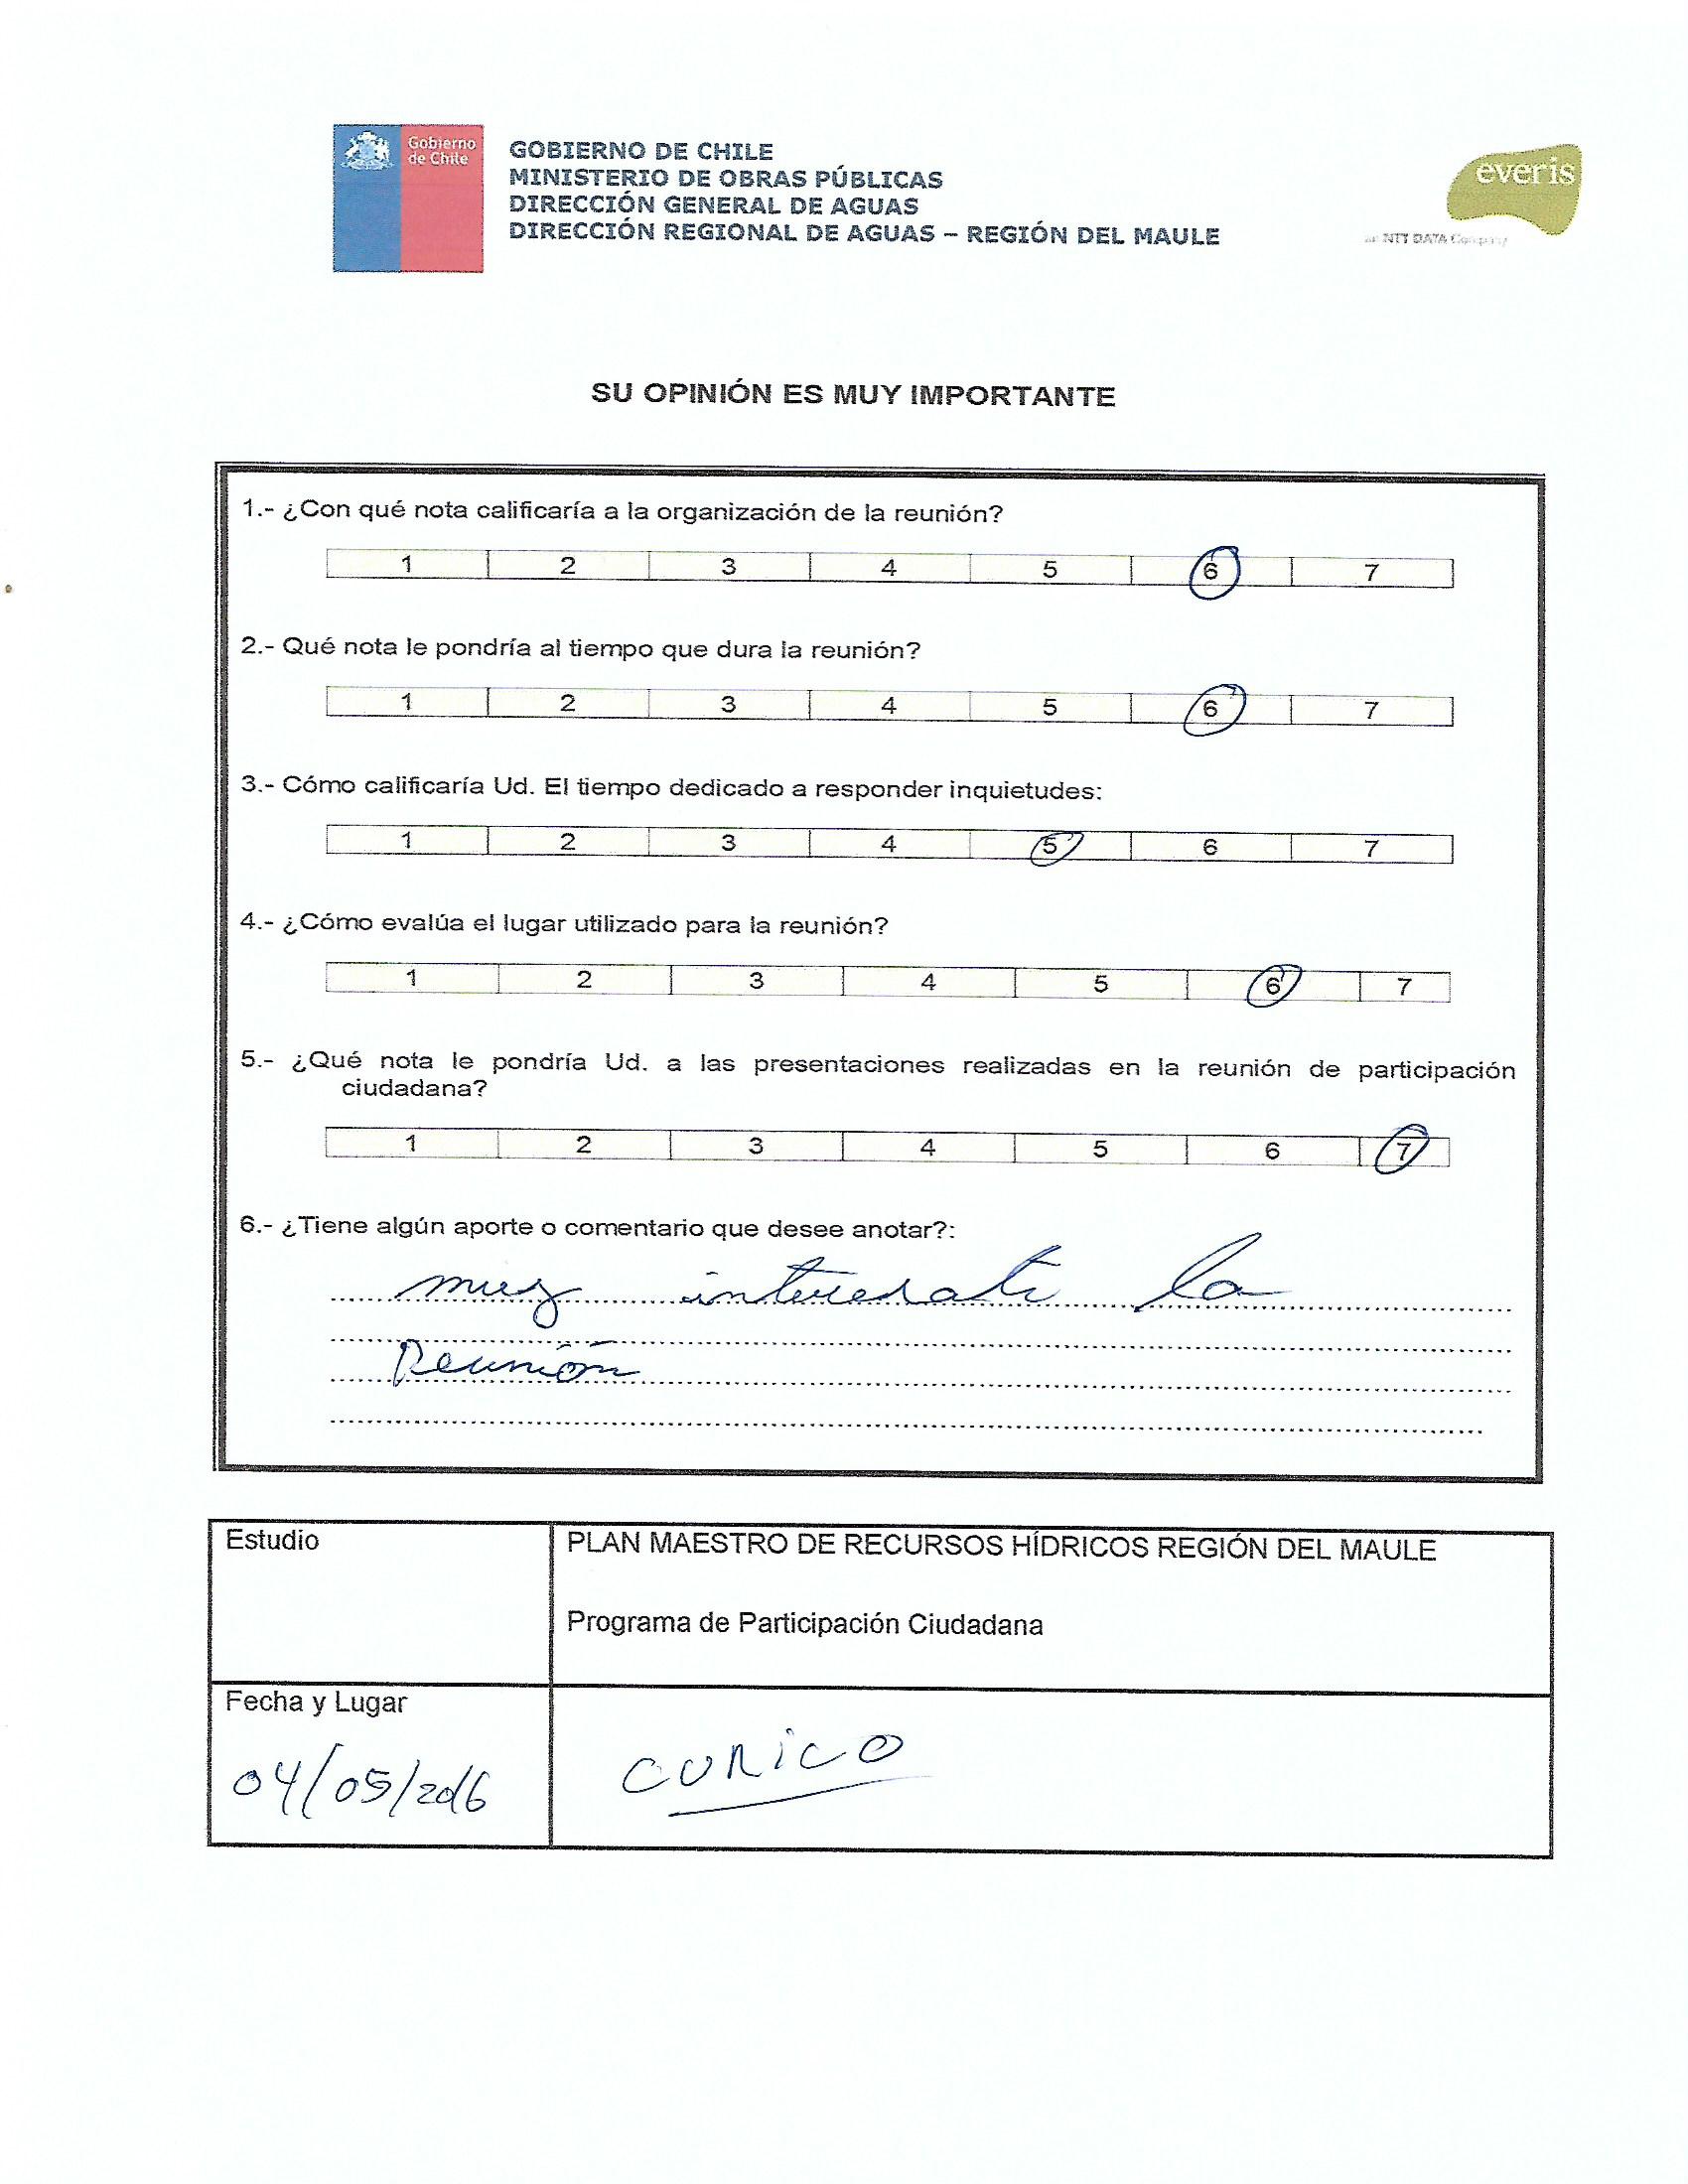 Gobierno
de Chile
GOBIERNO DE CHILE
MINISTERIO DE OBRAS PÚBLICAS
DIRECCIÓN GENERAL DE AGUAS
DIRECCIÓN REGIONAL DE AGUAS – REGIÓN DEL MAULE
everis
an NTT DATA Company
SU OPINIÓN ES MUY IMPORTANTE
1.- ¿Con qué nota calificaría a la organización de la reunión?
1 2 3 4 5 6 7
2.- Qué nota le pondría al tiempo que dura la reunión?
1 2 3 4 5 6 7
3.- Cómo calificaría Ud. El tiempo dedicado a responder inquietudes:
1 2 3 4 5 6 7
4.- ¿Cómo evalúa el lugar utilizado para la reunión?
1 2 3 4 5 6 7
5.- ¿Qué nota le pondría Ud. a las presentaciones realizadas en la reunión de participación
ciudadana?
1 2 3 4 5 6 7
6.- ¿Tiene algún aporte o comentario que desee anotar?:
muy la
Reunión
Estudio
PLAN MAESTRO DE RECURSOS HÍDRICOS REGIÓN DEL MAULE
Programa de Participación Ciudadana
Fecha y Lugar
04/05/2016
CURICO